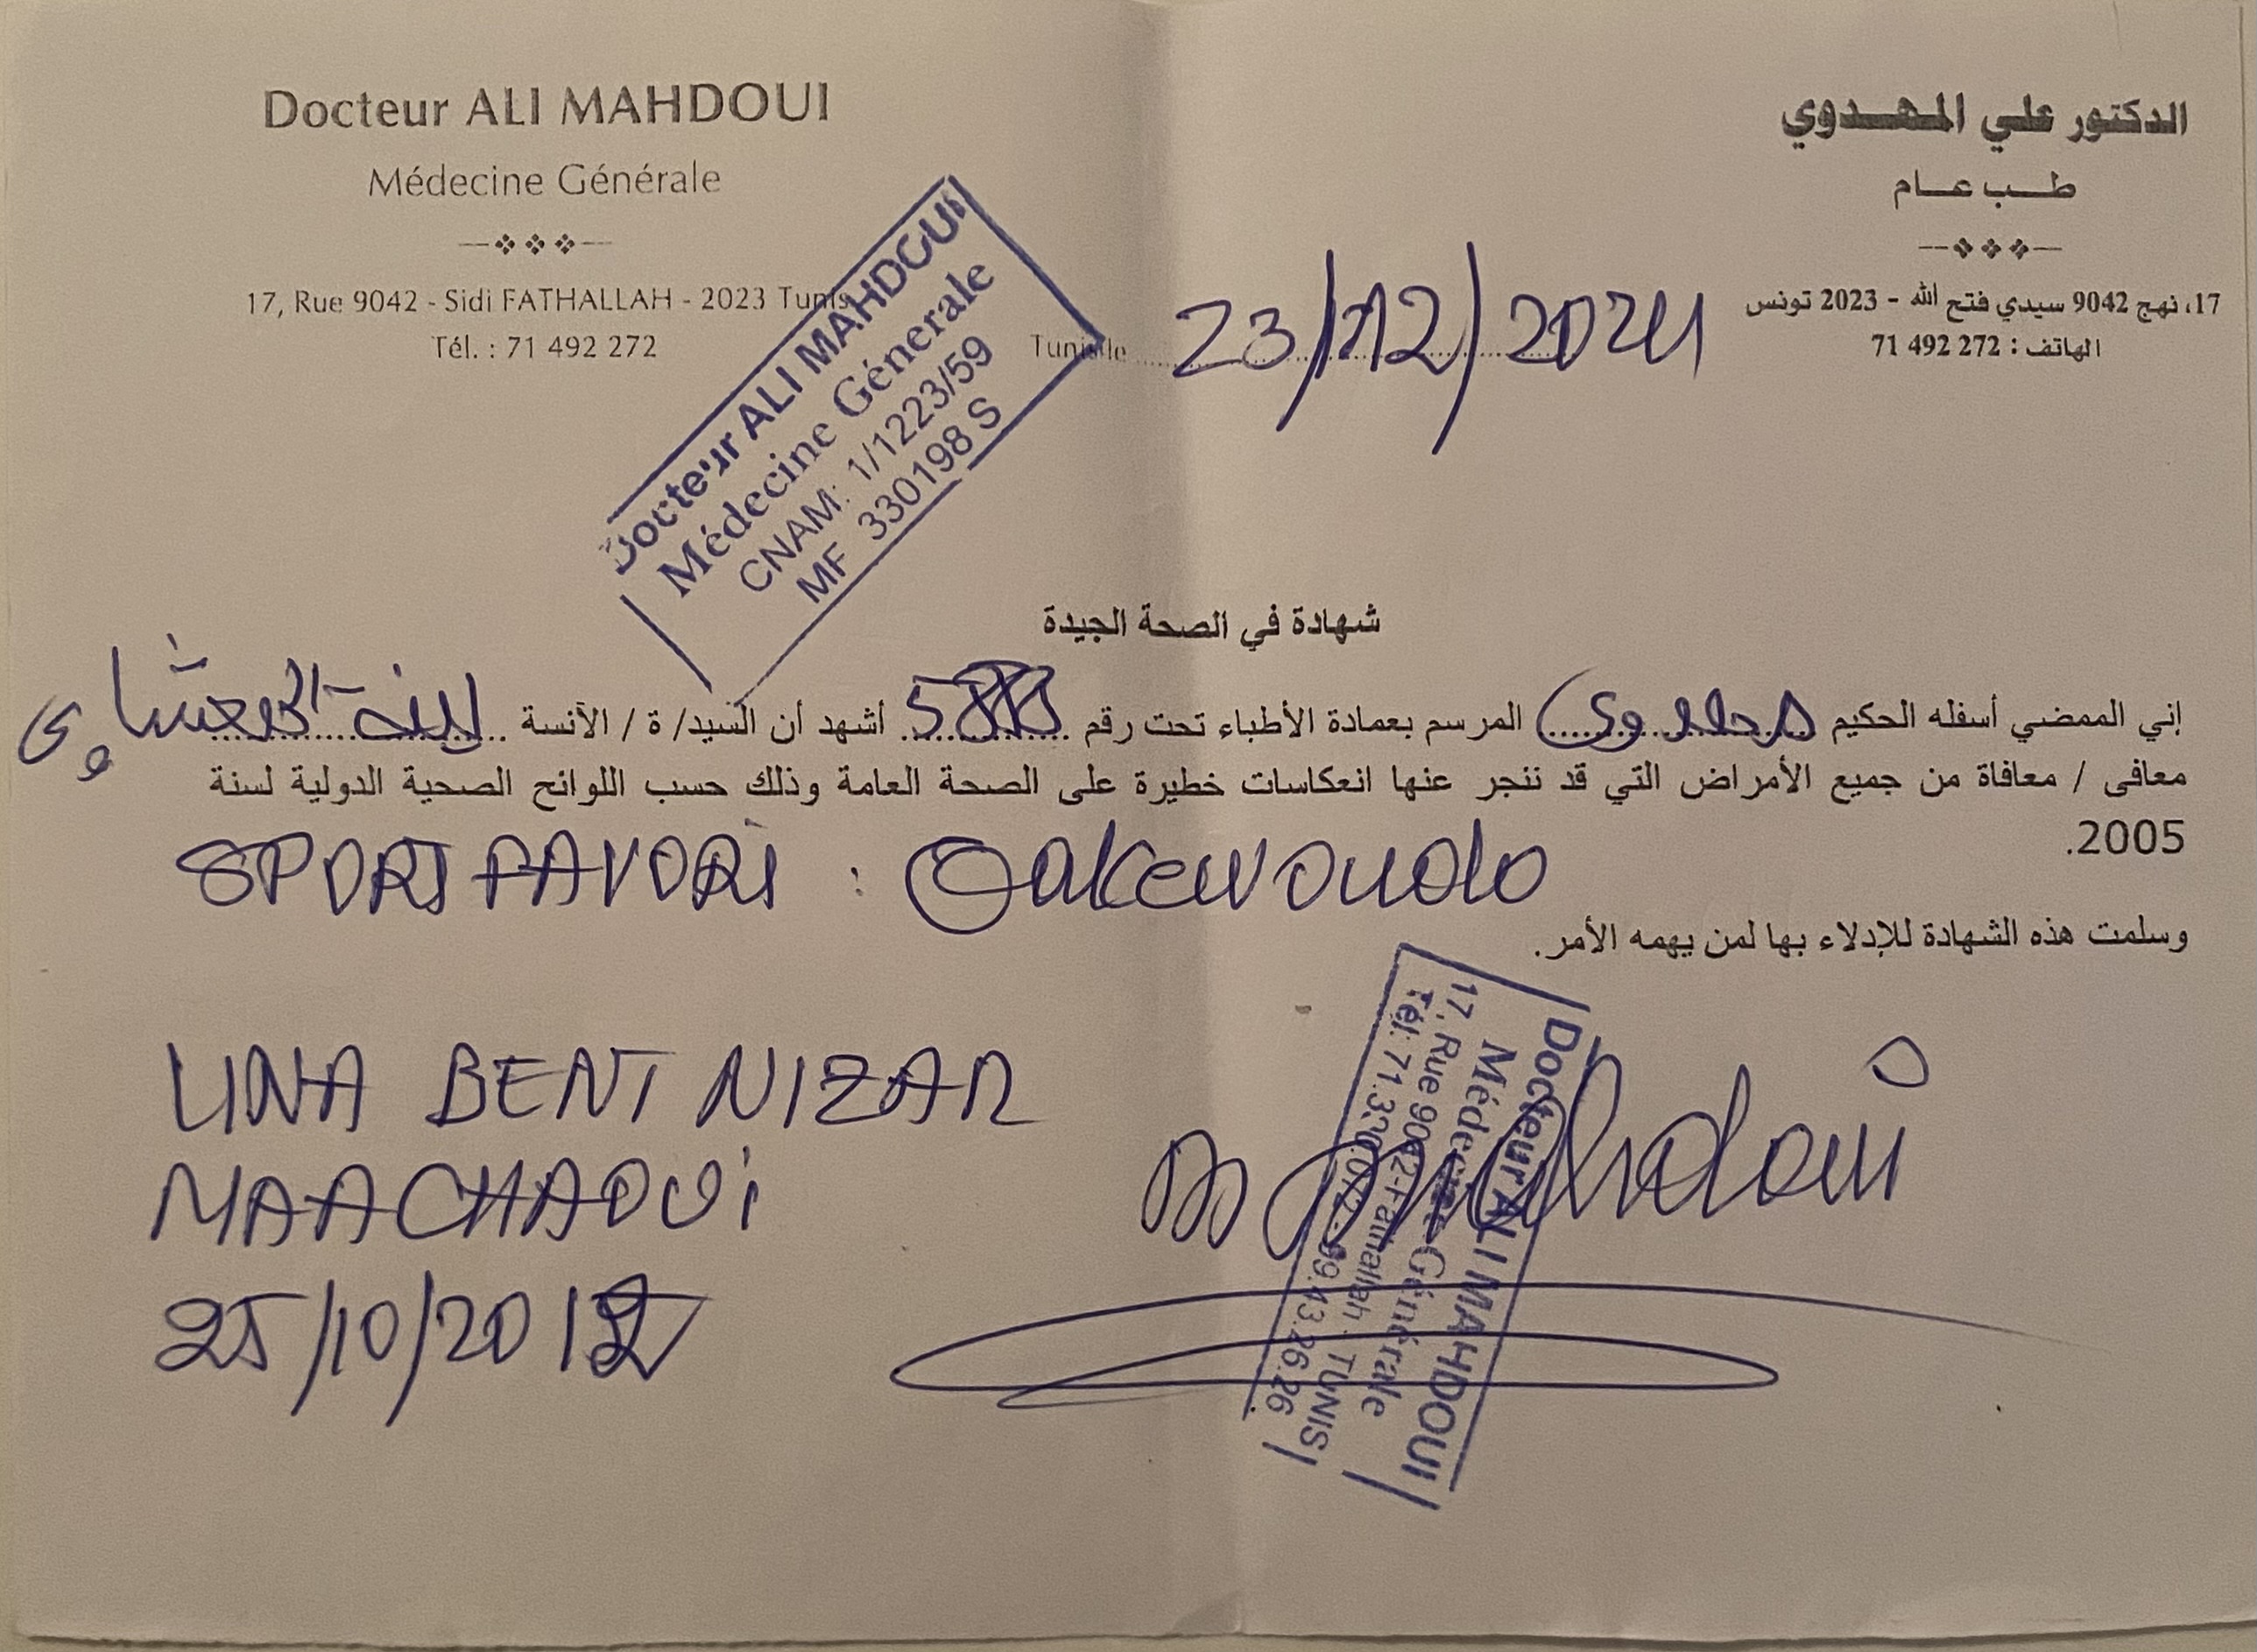 Docteur ALI MAHDOUI
Médecine Générale
17, Rue 9042 - Sidi FATHALLAH - 2023 Tunis
Tél. : 71 492 272
الدكتور علي المهدوي
طب عام
17، نهج 9042 سيدي فتح الله - 2023 تونس
الهاتف : 272 492 71
Docteur ALI MAHDOUI
Médecine Générale
CNAM: 1/1223/59
MF 330198 S
Tunis le 23/12/2024
شهادة في الصحة الجيدة
إني الممضي أسفله الحكيم المرسم بعمادة الأطباء تحت رقم أشهد أن السيد/ ة / الآنسة لينة المعشاوي
معافى / معافاة من جميع الأمراض التي قد ننجر عنها انعكاسات خطيرة على الصحة العامة وذلك حسب اللوائح الصحية الدولية لسنة
2005.
SPORT FAVORI :
وسلمت هذه الشهادة للإدلاء بها لمن يهمه الأمر.
LINA BENT NIZAR
MAACHAOUI
25/10/2012
Docteur ALI MAHDOUI
Médecine Générale
17, Rue 9042-Fathallah - TUNIS